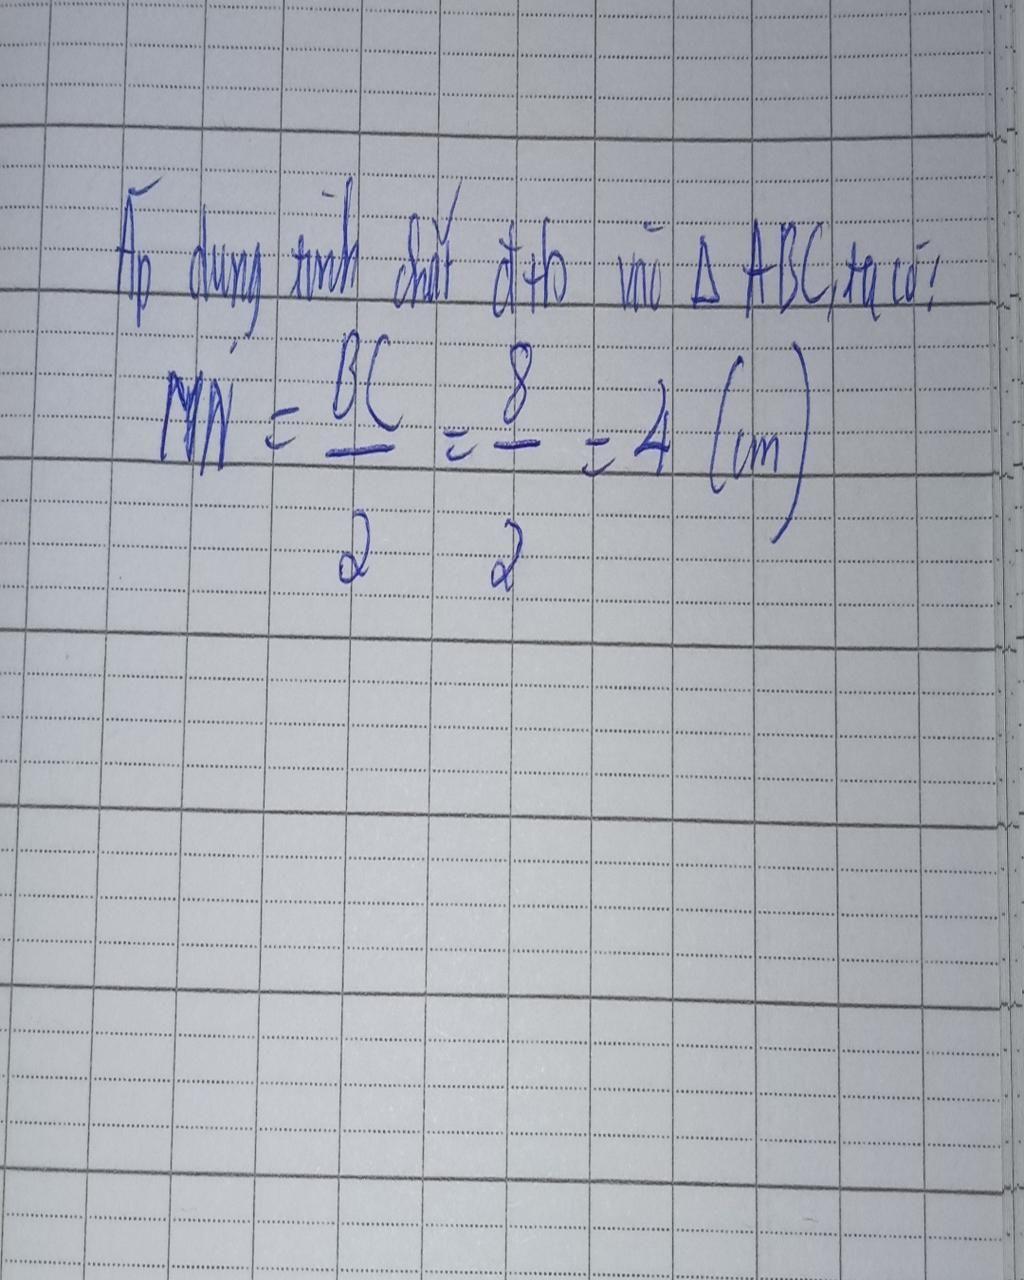 Áp dụng tính chất đtb vào Δ ABC, ta có:
MN = BC/2 = 8/2 = 4 (cm)